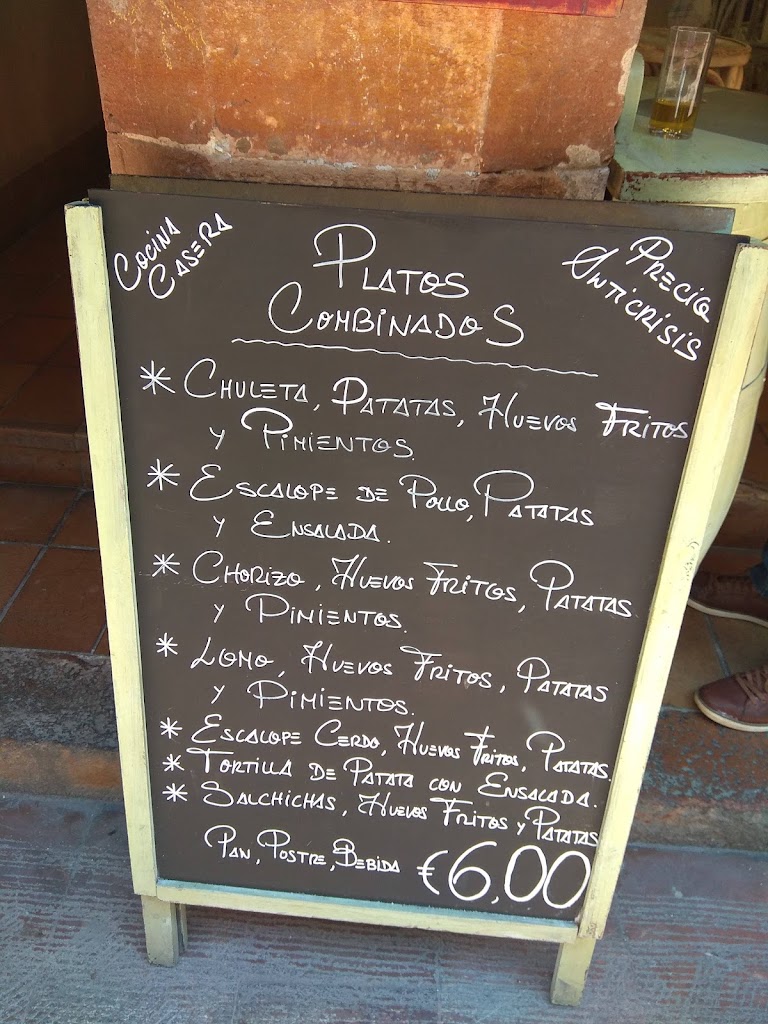 COCINA
CASERA
PLATOS
COMBINADOS
PRECIO
ANTICRISIS
* CHULETA, PATATAS, HUEVOS FRITOS
Y PIMIENTOS.
* ESCALOPE DE POLLO, PATATAS
Y ENSALADA.
* CHORIZO, HUEVOS FRITOS, PATATAS
Y PIMIENTOS.
* LOMO, HUEVOS FRITOS, PATATAS
Y PIMIENTOS.
* ESCALOPE CERDO, HUEVOS FRITOS, PATATAS,
* TORTILLA DE PATATA CON ENSALADA.
* SALCHICHAS, HUEVOS FRITOS Y PATATAS
PAN, POSTRE, BEBIDA €6,00